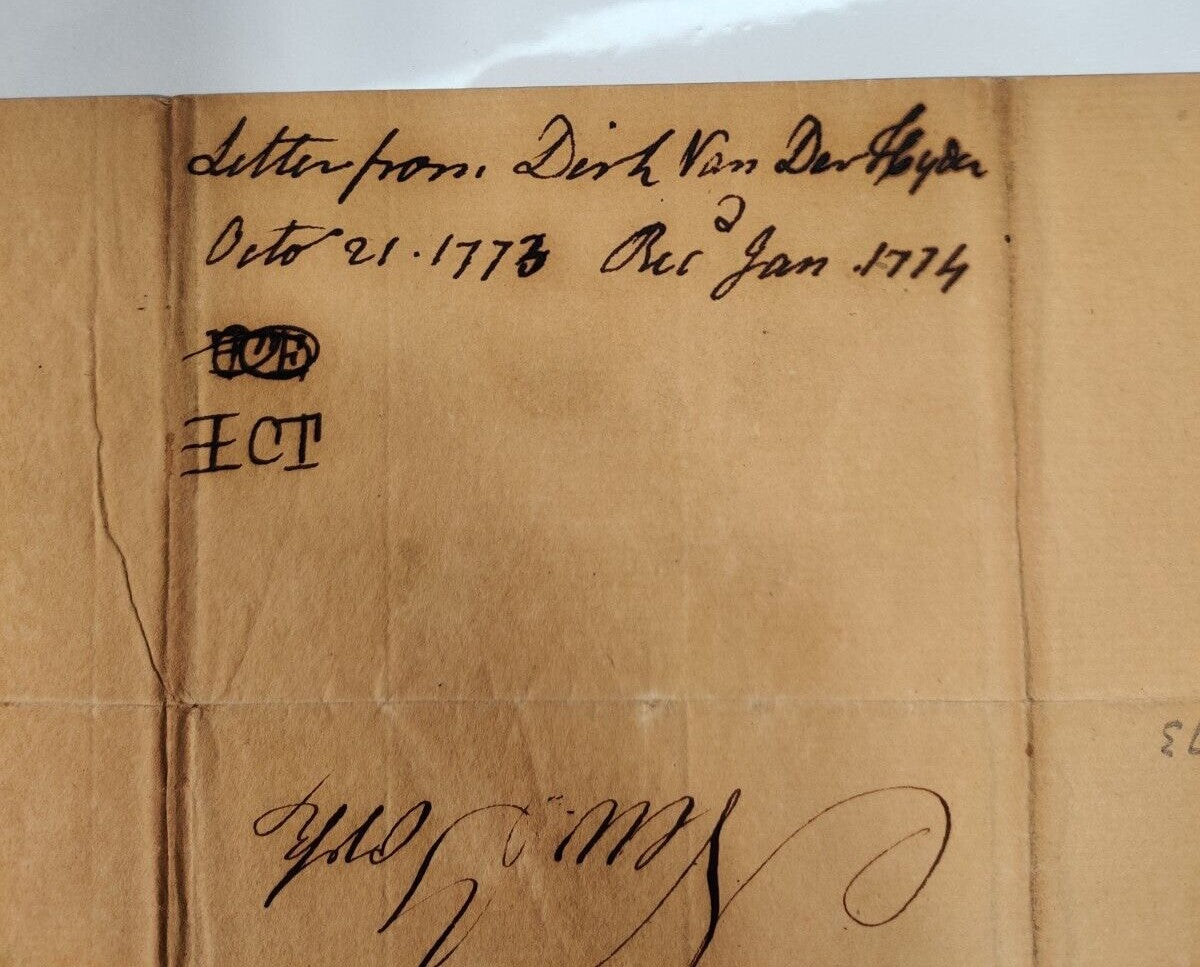 Letter from Dirk Van Der Hyder
Octor 21. 1773 Recd Jan. 1774
ICT
New York